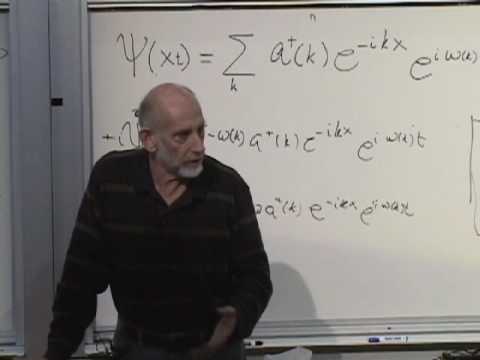 n
Ψ(xt) = ∑ₖ a⁺(k) e^{-ikx} e^{iω(k)
+i -ω(k) a⁺(k) e^{-ikx} e^{iω(k)t}
a⁺(k) e^{-ikx} e^{iω(k)t}